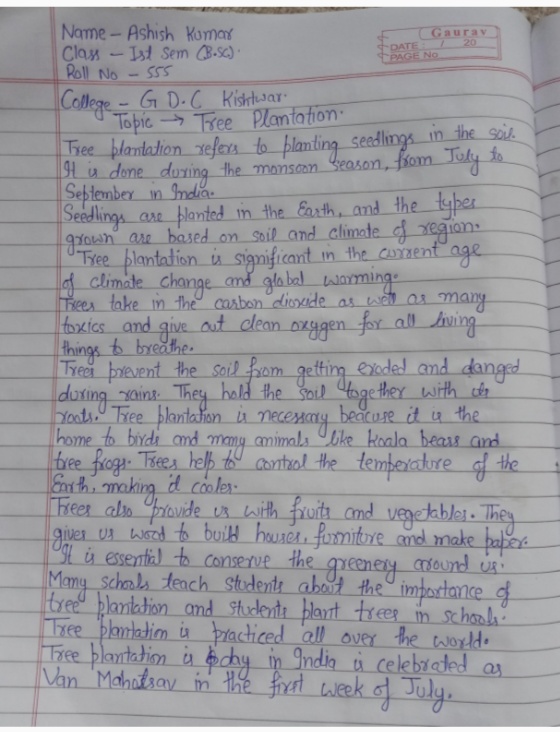 Gaurav
DATE: / 20
PAGE No
Name - Ashish Kumar
Class - Ist Sem (B.Sc).
Roll No - 555
College - G D.C Kishtwar.
Topic → Tree Plantation.
Tree plantation refers to planting seedlings in the soil.
It is done during the monsoon season, from July to
September in India.
Seedlings are planted in the Earth, and the types
grown are based on soil and climate of region.
Tree plantation is significant in the current age
of climate change and global warming.
Trees take in the carbon dioxide as well as many
toxics and give out clean oxygen for all living
things to breathe.
Trees prevent the soil from getting eroded and danged
during rains. They hold the soil together with its
roots. Tree plantation is necessary beacuse it is the
home to birds and many animals like koala bears and
tree frogs. Trees help to control the temperature of the
Earth, making it cooler.
Trees also provide us with fruits and vegetables. They
gives us wood to build houses, furniture and make paper.
It is essential to conserve the greenery around us.
Many schools teach students about the importance of
tree plantation and students plant trees in schools.
Tree plantation is practiced all over the world.
Tree plantation is day in India is celebrated as
Van Mahotsav in the first week of July.